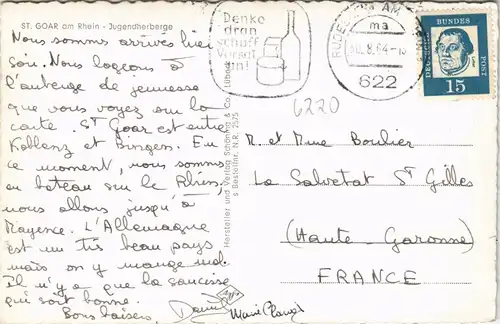 ST. GOAR am Rhein - Jugendherberge
Nous sommes arrivés hier
soir. Nous logeons à
l'auberge de jeunesse
que vous voyez sur la
carte. St Goar est entre
Koblenz et Bingen. En
ce moment, nous sommes
en bateau sur le Rhin,
nous allons jusqu'à
Mayence. L'Allemagne
est un très beau pays
mais on y mange mal.
Il n'y a que la saucisse
qui soit bonne.
Bons baisers,
Hersteller und Verlag Schöning & Co., Lübeck
Bestellnr. N.R. 2575
Denke
dran
schaff
Vorrat
an!
RÜDESHEIM AM
ma
8.64
622
DEUTSCHE BUNDESPOST
15
6220
M. et Mme Boulier
La Salvetat St Gilles
(Haute-Garonne)
FRANCE